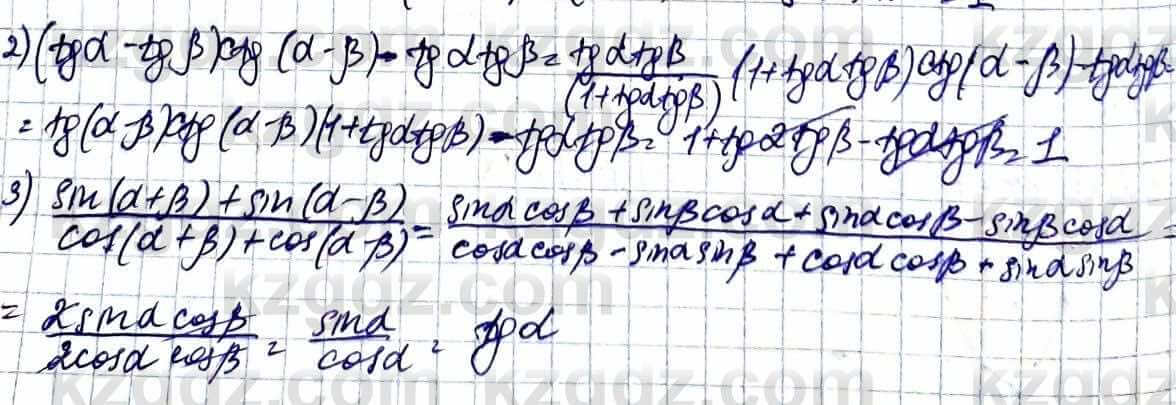 2) (tgα - tgβ)ctg(α-β) - tgαtgβ = tgαtgβ/(1+tgαtgβ) (1+tgαtgβ)ctg(α-β) - tgαtgβ =
= tg(α-β)ctg(α-β)(1+tgαtgβ) - tgαtgβ = 1+tgαtgβ - tgαtgβ = 1
3) sin(α+β)+sin(α-β)/cos(α+β)+cos(α-β) = sinαcosβ+sinβcosα+sinαcosβ-sinβcosα/cosαcosβ-sinαsinβ+cosαcosβ+sinαsinβ =
= 2sinαcosβ/2cosαcosβ = sinα/cosα = tgα
kzgdz.com